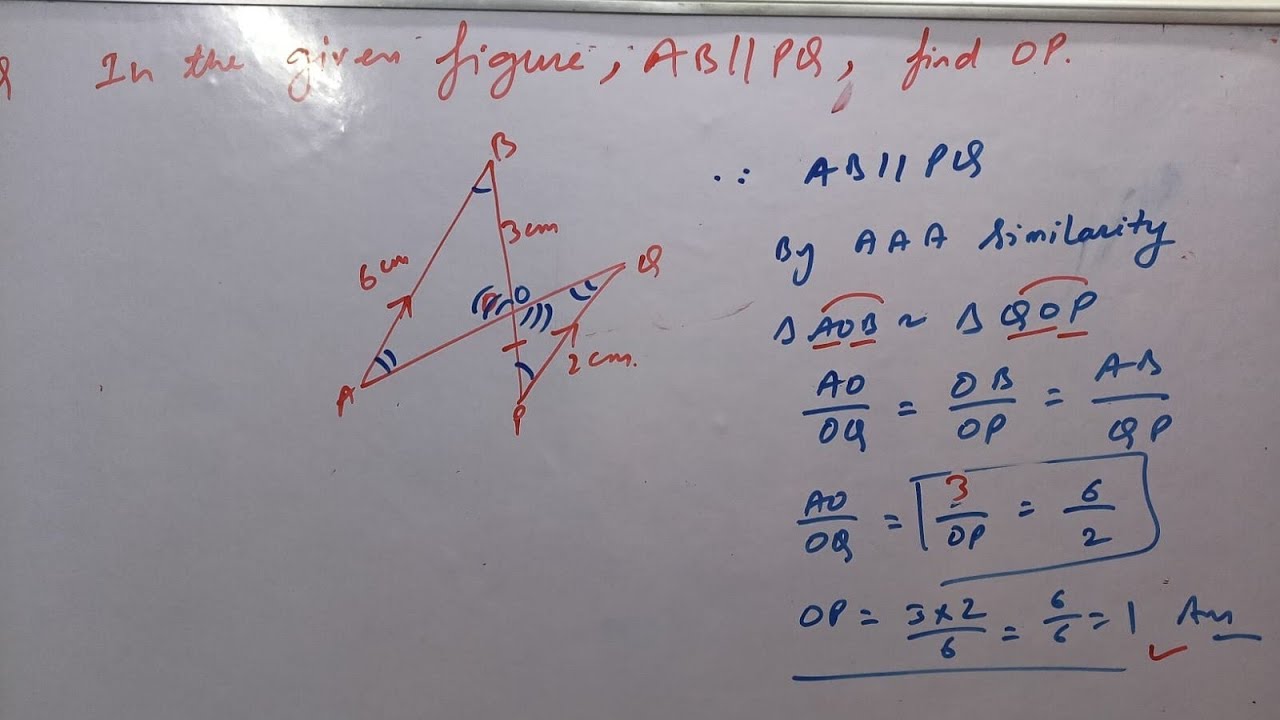 Q In the given figure, AB//PQ, find OP.
B
3cm
6cm
O
Q
2cm.
A
P
∵ AB//PQ
By AAA Similarity
Δ AOB ~ Δ QOP
AO/OQ = OB/OP = AB/QP
AO/OQ = 3/OP = 6/2
OP = 3×2/6 = 6/6 = 1 Ans